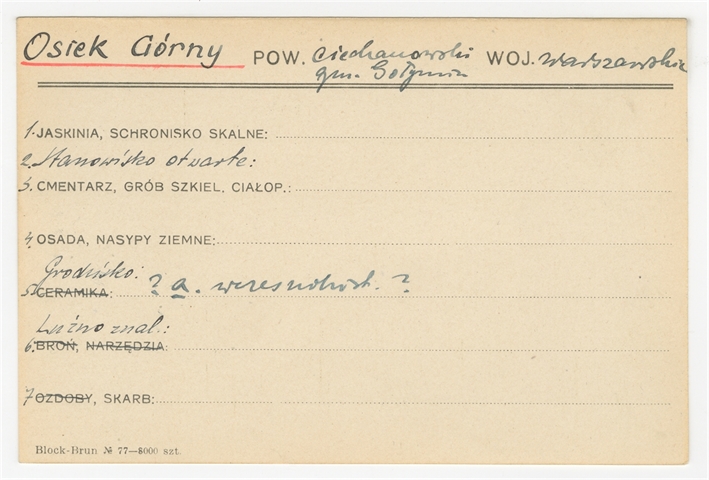 Osiek Górny POW. Ciechanowski WOJ. Warszawskie
gm. Gołymin
1. JASKINIA, SCHRONISKO SKALNE:
2. Stanowisko otwarte:
3. CMENTARZ, GRÓB SZKIEL, CIAŁOP.:
4. OSADA, NASYPY ZIEMNE:
Grodzisko:
5. CERAMIKA: ? a. wczesnohist. ?
Luźno znal.:
6. BROŃ, NARZĘDZIA:
7 OZDOBY, SKARB:
Block-Brun № 77—8000 szt.